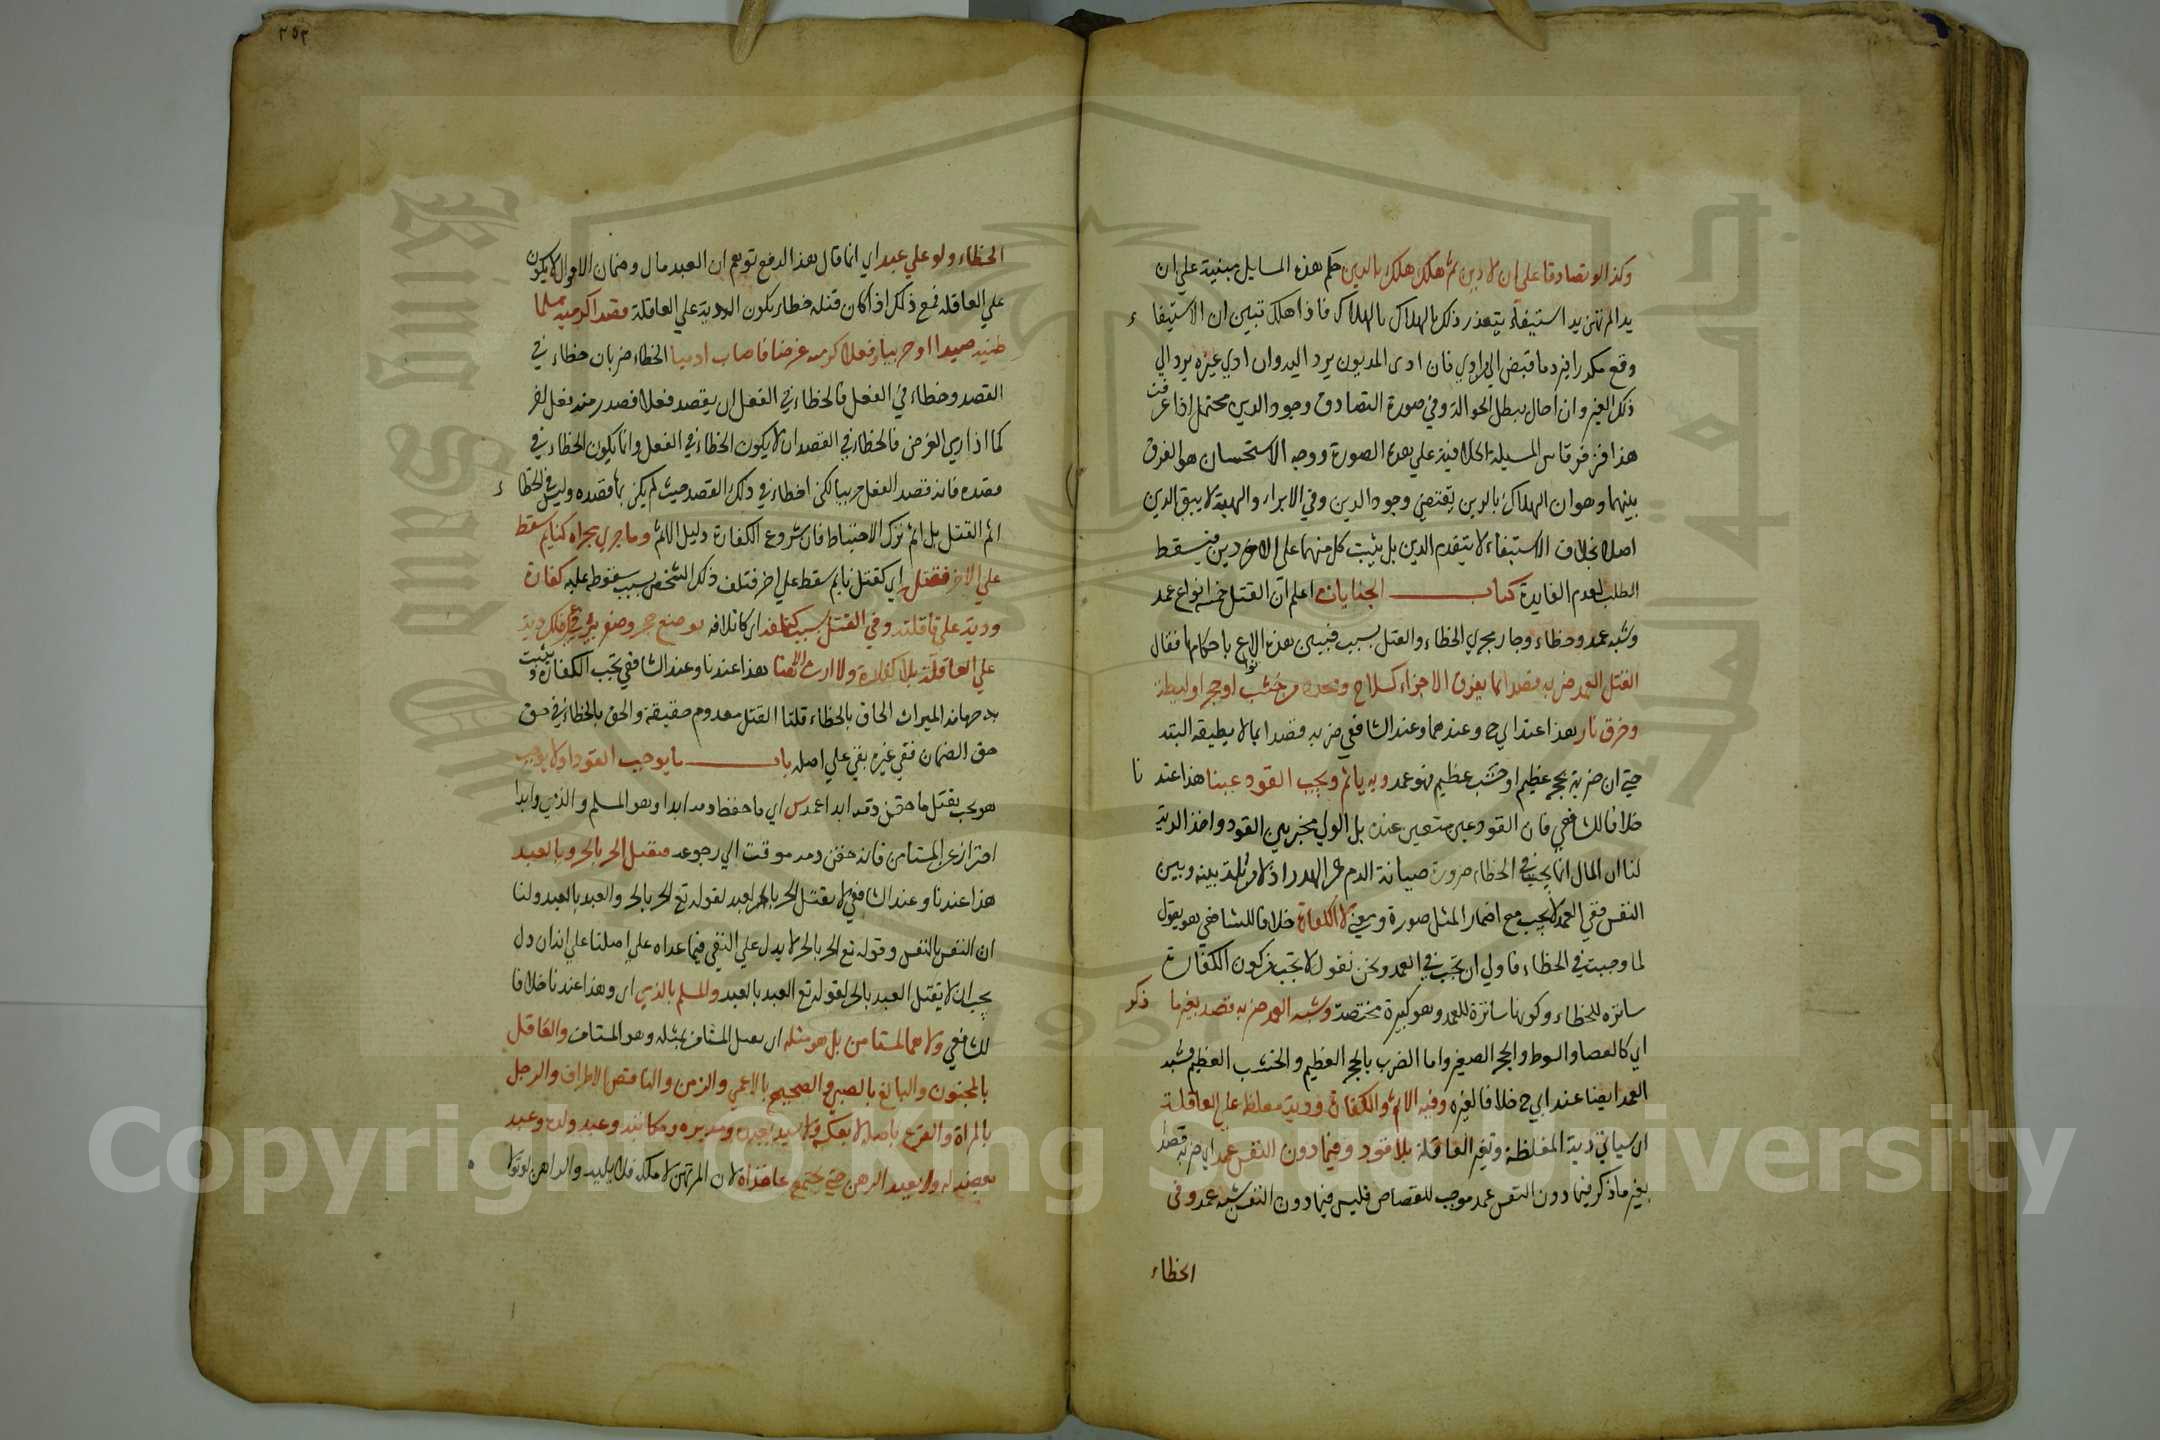 وكذا لو تصادقا على ان لا دين ثم هلك هلك بالدين حكم هذه المسايل مبنية علي ان
يد المرتهن يد استيفاء يتعذر ذلك بالهلاك فاذا هلك تبين ان الاستيفاء
وقع مكررا فيرد ما قبض الي فان ادى المديون يرد اليه وان ادي غيره يرد الي
ذلك الغير وان احال يبطل الحوالة وفي صورة التصادق وجود الدين محتمل اذا عرفت
هذا فزفر قاس المسيلة الخلافية علي هذه الصورة ووجه الاستحسان هو الفرق
بينهما وهو ان الهلاك بالرهن يقتضي وجود الدين وفي الابراء والهبة لا يبقى الدين
اصلا بخلاف الاستيفاء لا ينعدم الدين بل يثبت كل منهما على الاخر دين فيسقط
الطلب لعدم الفايدة كتاب الجنايات اعلم ان القتل خمسة انواع عمد
وشبه عمد وخطاء وجار مجري الخطاء والقتل بسبب فبين هذه الانواع باحكامها فقال
القتل العمد ضربه قصدا بما يفرق الاجزاء كسلاح ومحدد من خشب او حجر او ليطة
وحرق نار هذا عند ابي ح وعندهما وعند الشافعي ضربه قصدا بما لا يطيقه البنية
حتي ان ضربه بحجر عظيم او خشب عظيم فهو عمد وبه ياثم ويجب القود عينا هذا عندنا
خلافا للشافعي فان القود غير متعين عنده بل الولي مخير بين القود واخذ الدية
لنا ان المال انما يجب في الخطاء ضرورة صيانة الدم عن الهدر اذ لا مماثلة بينه وبين
النفس ففي العمد لا يجب مع احتمال المثل صورة ومعنى لا الكفارة خلافا للشافعي هو يقول
لما وجبت في الخطاء فاولي ان تجب في العمد ونحن نقول لا تجب من كون الكفارة
ساترة للخطاء وكونها ساترة للعمد وهو كبيرة محضة وشبه العمد ضربه قصدا بغير ما ذكر
اي كالعصا والسوط والحجر الصغير واما الضرب بالحجر العظيم والخشب العظيم فشبه
العمد ايضا عند ابي ح خلافا لغيره وفيه الاثم والكفارة ودية مغلظة علي العاقلة
اي سياتي دية المغلظة وتفسير العاقلة بلا قود وفيما دون النفس عمد اي ضربه قصدا
بغير ما ذكر فيما دون النفس عمد موجب للقصاص فليس فيما دون النفس شبه عمد وفي
الخطاء
٢٥٣
الخطاء ولو علي عبد اي انما قال هذا لدفع توهم ان العبد مال وضمان الاموال لا يكون
علي العاقلة فمع ذلك اذا كان قتله خطاء يكون الدية علي العاقلة قصدا كرميه مسلما
ظنه صيدا او حربيا وفعلا كرميه غرضا فاصاب ادميا الخطاء ضربان خطاء في
القصد وخطاء في الفعل فالخطاء في الفعل ان يقصد فعلا فصدر منه فعل اخر
كما اذا رمي الغرض فالخطاء في القصد ان لا يكون الخطاء في الفعل وانما يكون الخطاء في
قصده فانه قصد الفعل حربيا لكن اخطاء في ذلك القصد حيث لم يكن ما قصده وليس في الخطاء
اثم القتل بل اثم ترك الاحتياط فان شروع الكفارة دليل الاثم وما جري مجراه كنايم سقط
علي الاخر فقتل اي كقتل نايم سقط علي اخر فتلف ذلك الشخص بسبب سقوطه عليه كفارة
ودية علي عاقلته وفي القتل بسبب كتلفه اي كاتلافه بوضع حجر وحفر بير في غير ملكه دية
علي العاقلة بلا كفارة ولا ارث الا هنا هذا عندنا وعند الشافعي تجب الكفارة ويثبت
به حرمان الميراث الحاقا بالخطاء قلنا القتل معدوم حقيقة والحق بالخطاء في حق
حق الضمان ففي غيره بقي علي اصله باب ما يوجب القود او لا يوجب
هو يجب بقتل ما حقن دمه ابدا عمدا س اي ما حفظ دمه ابدا وهو المسلم والذمي وابدا
احتراز عن المستامن فانه حقن دمه موقت الي رجوعه فيقتل الحر بالحر وبالعبد
هذا عندنا وعند الشافعي لا يقتل الحر بالعبد لقوله تع الحر بالحر والعبد بالعبد ولنا
ان النفس بالنفس وقوله تع الحر بالحر لا يدل علي النفي فيما عداه علي اصلنا علي انه ان دل
يجب ان لا يقتل العبد بالحر لقوله تع العبد بالعبد والمسلم بالذمي اي وهذا عندنا خلافا
للشافعي ولا هما بالمستامن بل هو بمثله اي يقتل المستامن بمثله وهو المستامن والعاقل
بالمجنون والبالغ بالصبي والصحيح بالاعمي والزمن والناقص الاطراف والرجل
بالمراة والفرع باصله لا بعكسه ولا سيد بعبده ومدبره ومكاتبه وعبد ولده وعبد
بعضه له ولا بعبد الرهن حتي يجتمع عاقداه لان المرتهن لا ملك له فلا يليه والراهن لو تولا